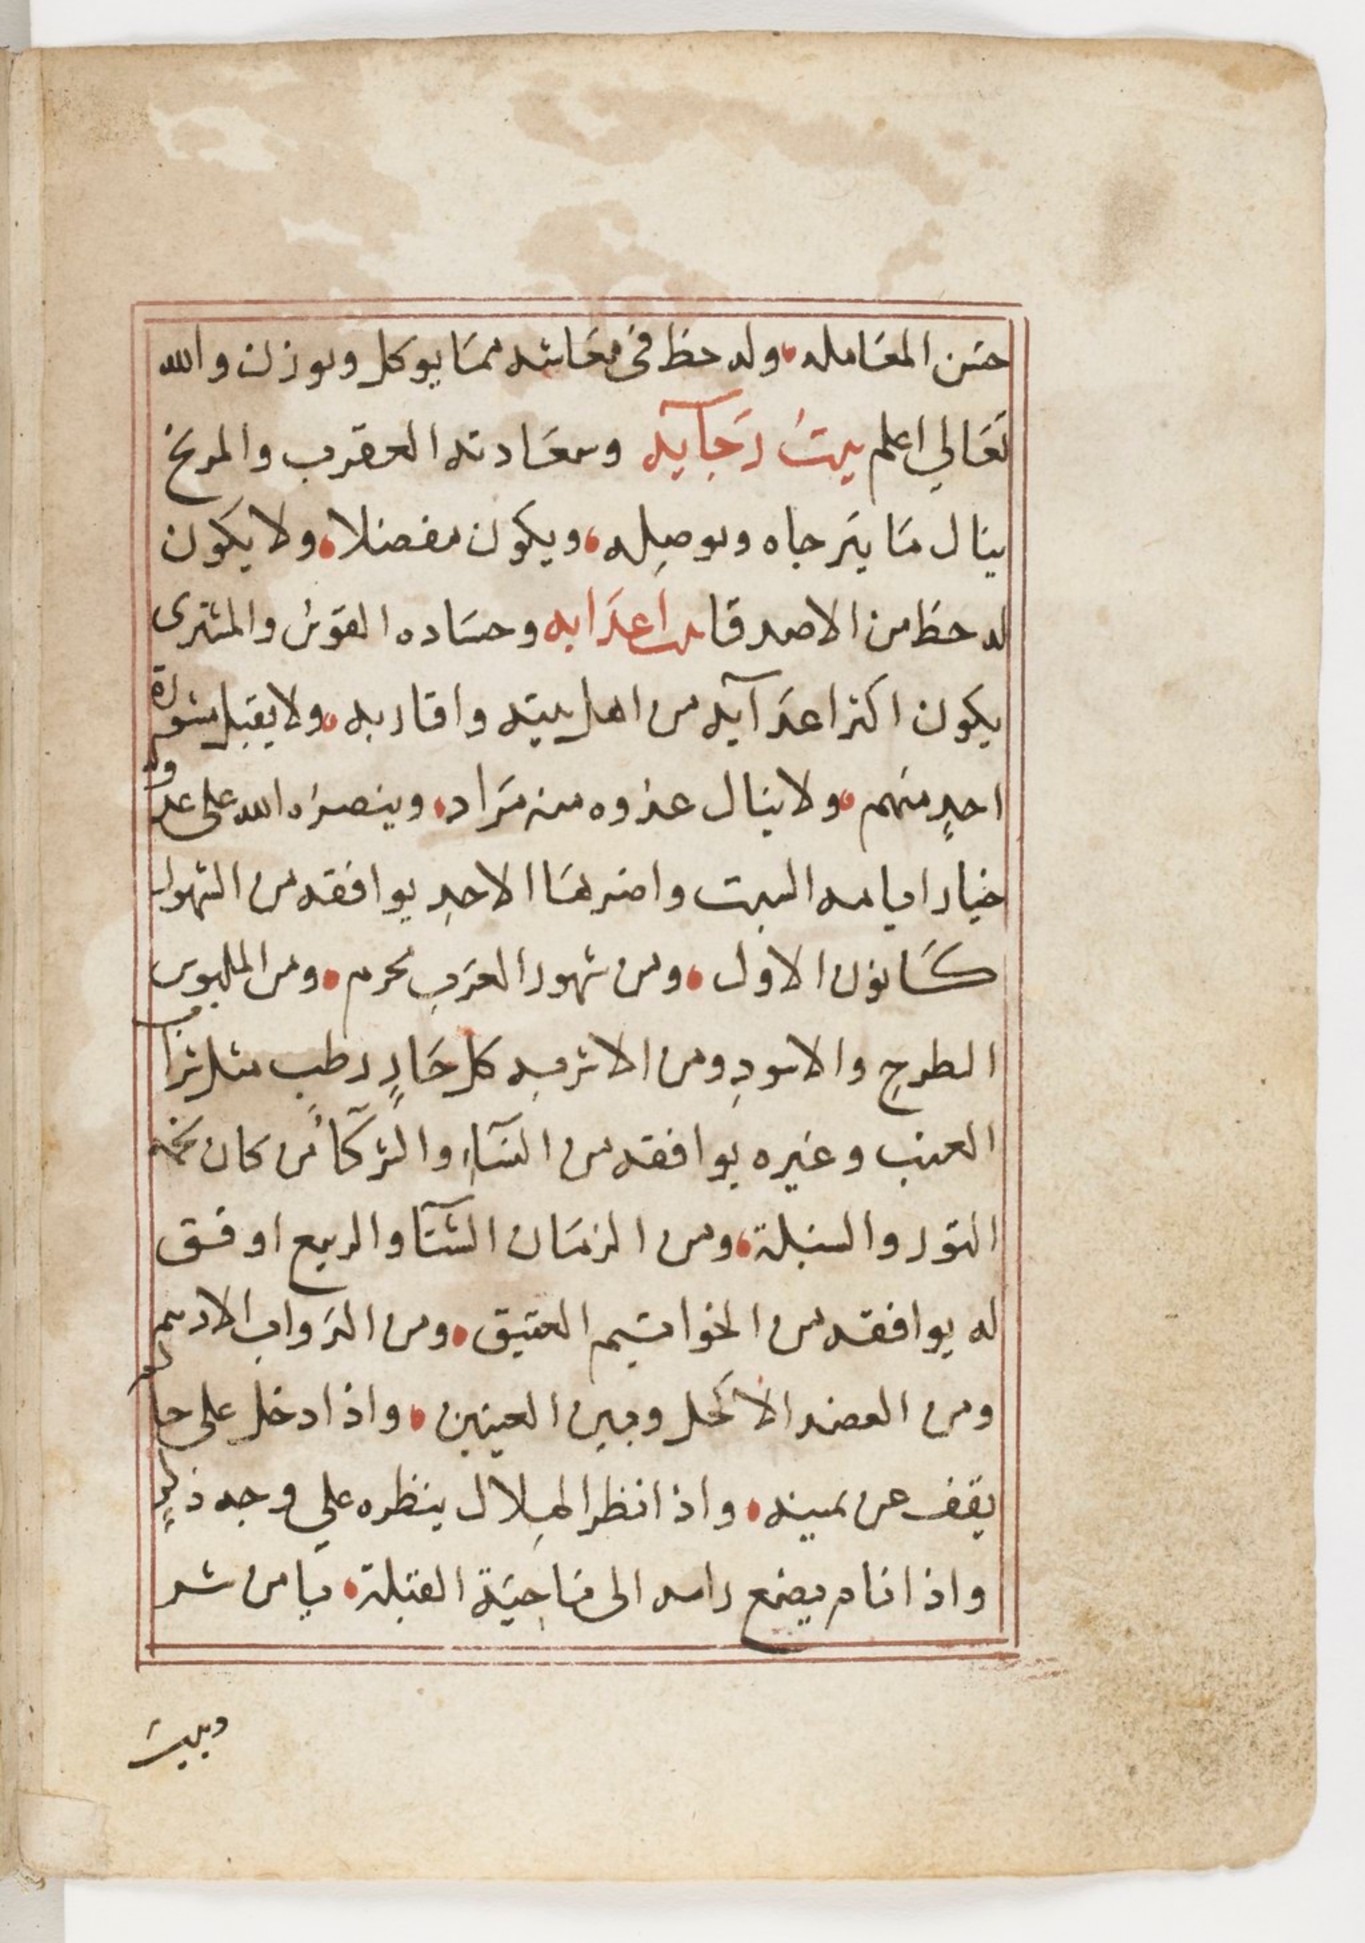 حسَن المعَامله، وله حظ في معَاشه ممَا يوكل ويوزن والله
تعَالي اعلم بيتُ رَجَآيه وسعَادته العقرب والمريخ
ينال مَا يترجاه ويوصِله، ويكون مفضلا، ولا يكون
له حظ من الاصدقا بيت اعدَايه وحسَاده القوسُ والمشتري
يكون اكثر اعدَآيه من اهل بيته واقاربه، ولا يقبل مشورة
احدٍ منهم، ولا ينال عدوه منه مَراد، وينصرُه الله على عدوه
خيار ايامه السبت واضرهَا الاحدِ يوافقه من الشهور
كَانون الاول، ومن شهور العرَب محرم، ومن الملبوس
الطرح والاسودِ ومن الاشربه كل حَارٍ رطب مثل شراب
العنب وغيره يوافقه من النسَآءِ والشركآ من كان نجمه
الثور والسنبلة، ومن الزمَان الشتَآ والربيع اوفق
له يوافقه من الخواتيم العقيق، ومن الدَواب الادهم
ومن العضد الاكحل وبين العينين، واذا دخل على حاكم
يقف عن يمينه، واذا نظر الهِلال ينظره علي وجه ذكرٍ
واذا نام يضع راسه الى نَاحِيَة القبلة، يامن شر
دبيبَ